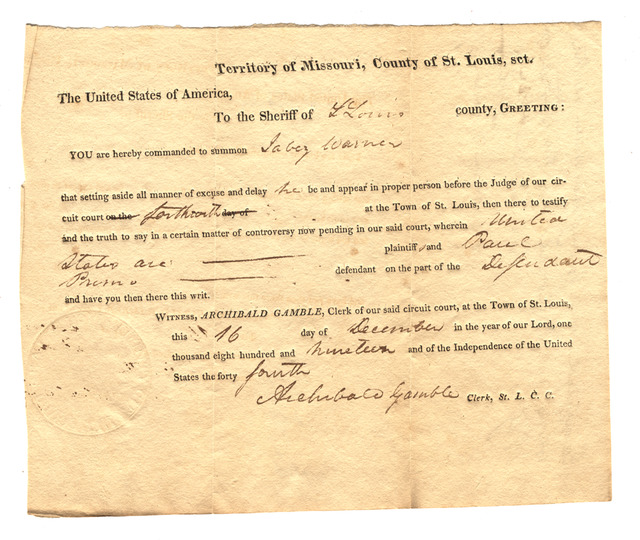 Territory of Missouri, County of St. Louis, sct.
The United States of America,
To the Sheriff of St Louis county, GREETING:
YOU are hereby commanded to summon Jabez Warner
that setting aside all manner of excuse and delay he be and appear in proper person before the Judge of our cir-
cuit court on the forthwith day of at the Town of St. Louis, then there to testify
and the truth to say in a certain matter of controversy now pending in our said court, wherein United
States are plaintiff, and Paul
Primo defendant on the part of the Defendant
and have you then there this writ.
WITNESS, ARCHIBALD GAMBLE, Clerk of our said circuit court, at the Town of St. Louis,
this 16 day of December in the year of our Lord, one
thousand eight hundred and nineteen and of the Independence of the United
States the forty fourth
Archibald Gamble Clerk, St. L. C. C.